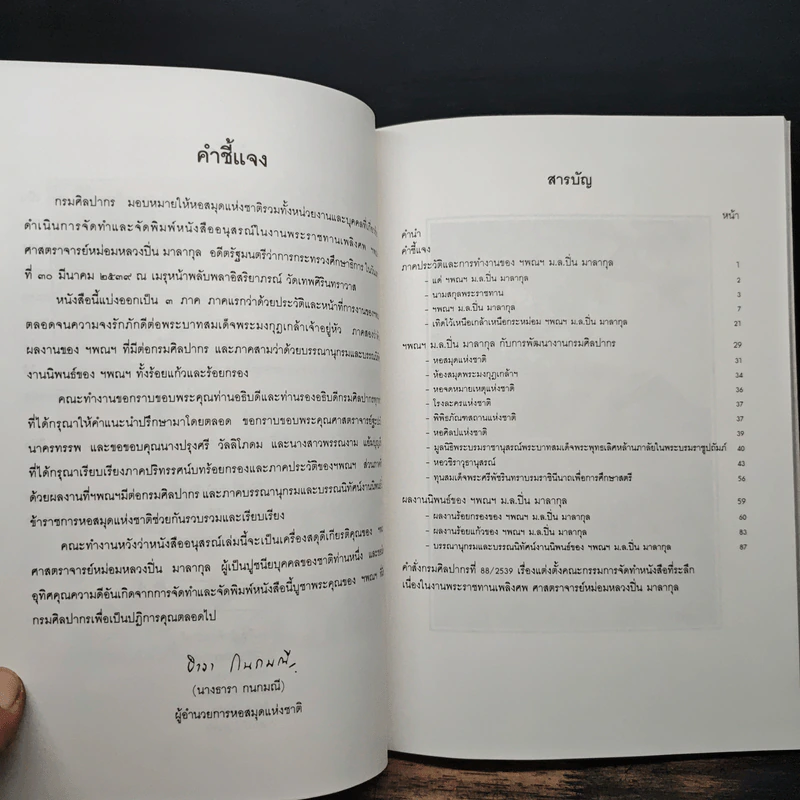 คำชี้แจง
กรมศิลปากร มอบหมายให้หอสมุดแห่งชาติรวมทั้งหน่วยงานและบุคคลที่
ดำเนินการจัดทำและจัดพิมพ์หนังสืออนุสรณ์ในงานพระราชทานเพลิงศพ
ศาสตราจารย์หม่อมหลวงปิ่น มาลากุล อดีตรัฐมนตรีว่าการกระทรวงศึกษาธิการ
ที่ ๓๐ มีนาคม ๒๕๓๙ ณ เมรุหน้าพลับพลาอิสริยาภรณ์ วัดเทพศิรินทราวาส
หนังสือนี้แบ่งออกเป็น ๓ ภาค ภาคแรกว่าด้วยประวัติและหน้าที่การงานของ
ตลอดจนความจงรักภักดีต่อพระบาทสมเด็จพระมงกุฎเกล้าเจ้าอยู่หัว
ผลงานของ ฯพณฯ ที่มีต่อกรมศิลปากร และภาคสามว่าด้วยบรรณานุกรมและ
งานนิพนธ์ของ ฯพณฯ ทั้งร้อยแก้วและร้อยกรอง
คณะทำงานขอกราบขอบพระคุณท่านอธิบดีและท่านรองอธิบดีกรมศิลปากร
ที่ได้กรุณาให้คำแนะนำปรึกษามาโดยตลอด ขอกราบขอบพระคุณศาสตราจารย์
นาครทรรพ และขอขอบคุณนางปรุงศรี วัลลิโภดม และนางสาวพรรณงาม
ที่ได้กรุณาเรียบเรียงภาคปริทรรศน์บทร้อยกรองและภาคประวัติของฯพณฯ
ด้วยผลงานที่ฯพณฯมีต่อกรมศิลปากร และภาคบรรณานุกรมและบรรณนิทัศน์งานนิพนธ์
ข้าราชการหอสมุดแห่งชาติช่วยกันรวบรวมและเรียบเรียง
คณะทำงานหวังว่าหนังสืออนุสรณ์เล่มนี้จะเป็นเครื่องสดุดีเกียรติคุณของ
ศาสตราจารย์หม่อมหลวงปิ่น มาลากุล ผู้เป็นปูชนียบุคคลของชาติท่านหนึ่ง
อุทิศคุณความดีอันเกิดจากการจัดทำและจัดพิมพ์หนังสือนี้บูชาพระคุณของ ฯพณฯ
กรมศิลปากรเพื่อเป็นปฏิการคุณตลอดไป
ธารา กนกมณี
(นางธารา กนกมณี)
ผู้อำนวยการหอสมุดแห่งชาติ
สารบัญ
หน้า
คำนำ
คำชี้แจง
ภาคประวัติและการทำงานของ ฯพณฯ ม.ล.ปิ่น มาลากุล 1
- แด่ ฯพณฯ ม.ล.ปิ่น มาลากุล 2
- นามสกุลพระราชทาน 3
- ฯพณฯ ม.ล.ปิ่น มาลากุล 7
- เทิดไว้เหนือเกล้าเหนือกระหม่อม ฯพณฯ ม.ล.ปิ่น มาลากุล 21
ฯพณฯ ม.ล.ปิ่น มาลากุล กับการพัฒนางานกรมศิลปากร 29
- หอสมุดแห่งชาติ 31
- ห้องสมุดพระมงกุฎเกล้าฯ 34
- หอจดหมายเหตุแห่งชาติ 36
- โรงละครแห่งชาติ 37
- พิพิธภัณฑสถานแห่งชาติ 37
- หอศิลปแห่งชาติ 39
- มูลนิธิพระบรมราชานุสรณ์พระบาทสมเด็จพระพุทธเลิศหล้านภาลัยในพระบรมราชูปถัมภ์ 40
- หอวชิราวุธานุสรณ์ 43
- ทุนสมเด็จพระศรีพัชรินทราบรมราชินีนาถเพื่อการศึกษาสตรี 56
ผลงานนิพนธ์ของ ฯพณฯ ม.ล.ปิ่น มาลากุล 59
- ผลงานร้อยกรองของ ฯพณฯ ม.ล.ปิ่น มาลากุล 60
- ผลงานร้อยแก้วของ ฯพณฯ ม.ล.ปิ่น มาลากุล 83
- บรรณานุกรมและบรรณนิทัศน์งานนิพนธ์ของ ฯพณฯ ม.ล.ปิ่น มาลากุล 87
คำสั่งกรมศิลปากรที่ 88/2539 เรื่องแต่งตั้งคณะกรรมการจัดทำหนังสือที่ระลึก
เนื่องในงานพระราชทานเพลิงศพ ศาสตราจารย์หม่อมหลวงปิ่น มาลากุล